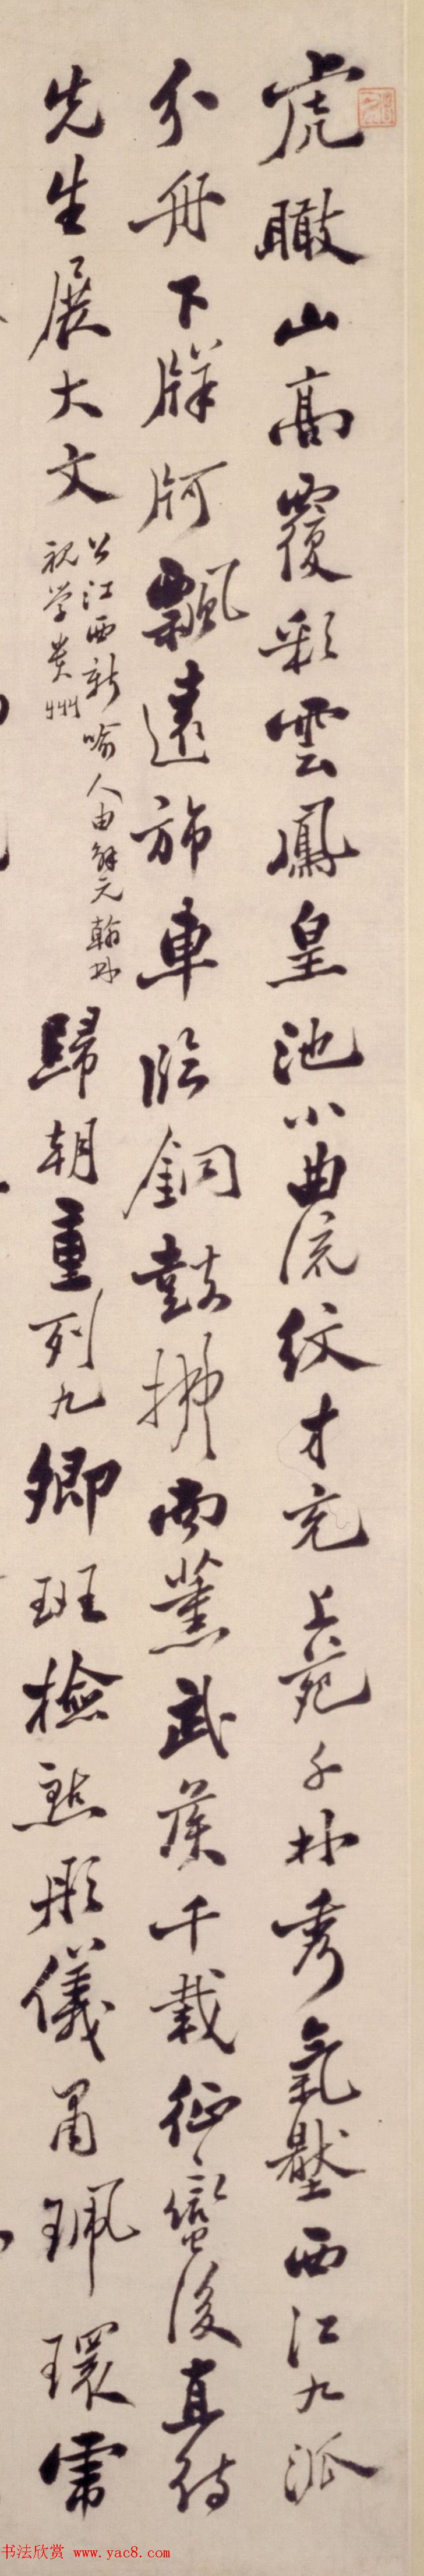 虎瞰山高覆彩雲鳳皇池小曲流紋才充上苑千林秀氣壓西江九派
分舟下牂牁飄遠旆車臨銅鼓拂南薰武侯千載征蠻後直待
先生展大文
公江西新喻人由解元翰林
視學貴州
歸朝重列九卿班檢點彤儀肅珮環霈
书法欣赏 www.yac8.com